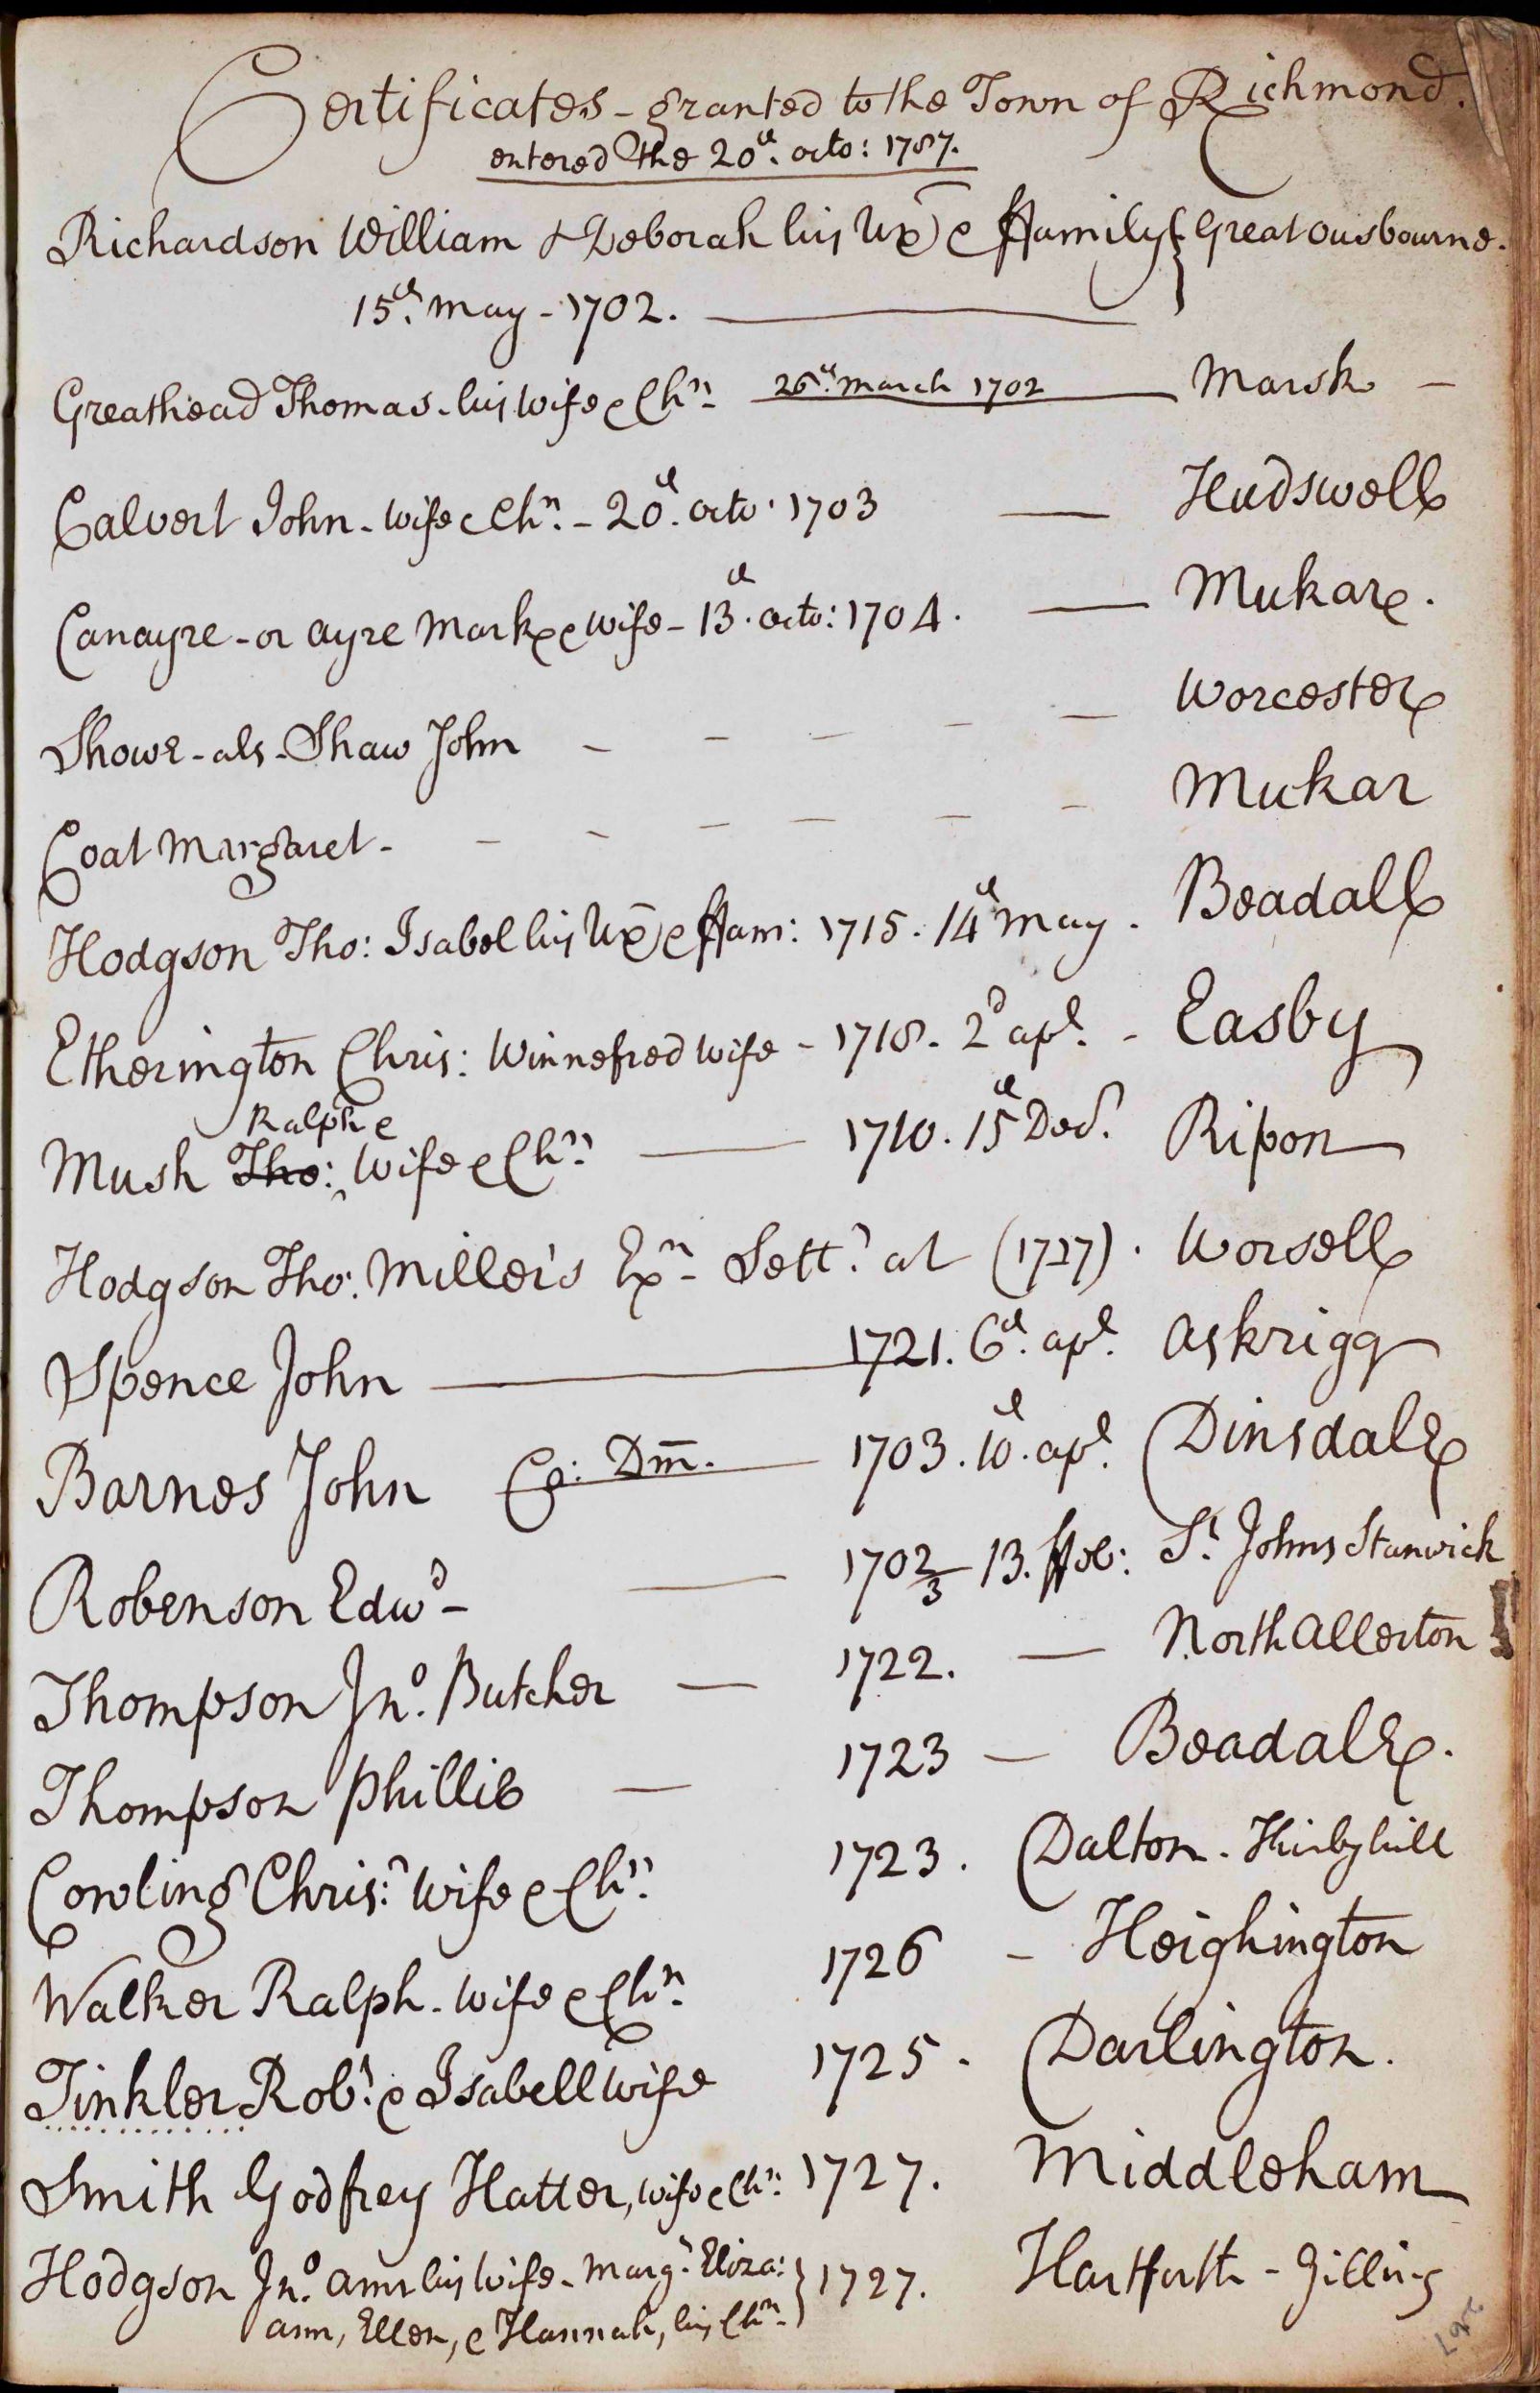 Certificates - granted to the Town of Richmond.
entered the 20th. octo: 1757.
Richardson William & Deborah his Ux) & ffamily } Great ousbourne.
15th. may - 1702.
Greathead Thomas - his wife & Chn. 26th. march 1702 — Marsk -
Calvert John - wife & Chn. - 20th. octo. 1703 — Hudswell
Canayre - or ayre Mark & wife - 13th. octo: 1704. — Mukar.
Showe - als - Shaw John - - - - - Worcester
Coat Margaret - - - - - - - Mukar
Hodgson Tho: Isabel his Ux) & ffam: 1715. 14th may. Beadall
Etherington Chris: Winnefred wife - 1718. 2d apl. - Easby
Ralph &
Mush Tho: wife & Chn. — 1710. 15th Decr. Ripon
Hodgson Tho: Miller's Exn - Settt. at (1727). Worsell
Spence John — 1721. 6th. apl. Askrigg
Barnes John Co: Dm. — 1703. 10th. apl. Dinsdale
Robenson Edwd - — 1702/3 - 13. ffeb: St. Johns Stanwick
Thompson Jno. Butcher — 1722. — Northallerton
Thompson Phillis — 1723 — Beadale.
Cowling Chrisr: wife & Chn. 1723. Dalton - Kirbyhill
Walker Ralph - wife & Chn. 1726 - Heighington
Tinkler Robt. & Isabell wife 1725. Darlington.
Smith Godfrey Hatter, wife & Chn: 1727. Middleham
Hodgson Jno. Ann his wife - Margt. Eliza: } 1727. Hartforth - Gilling
Ann, Ellen, & Hannah, his Chn.